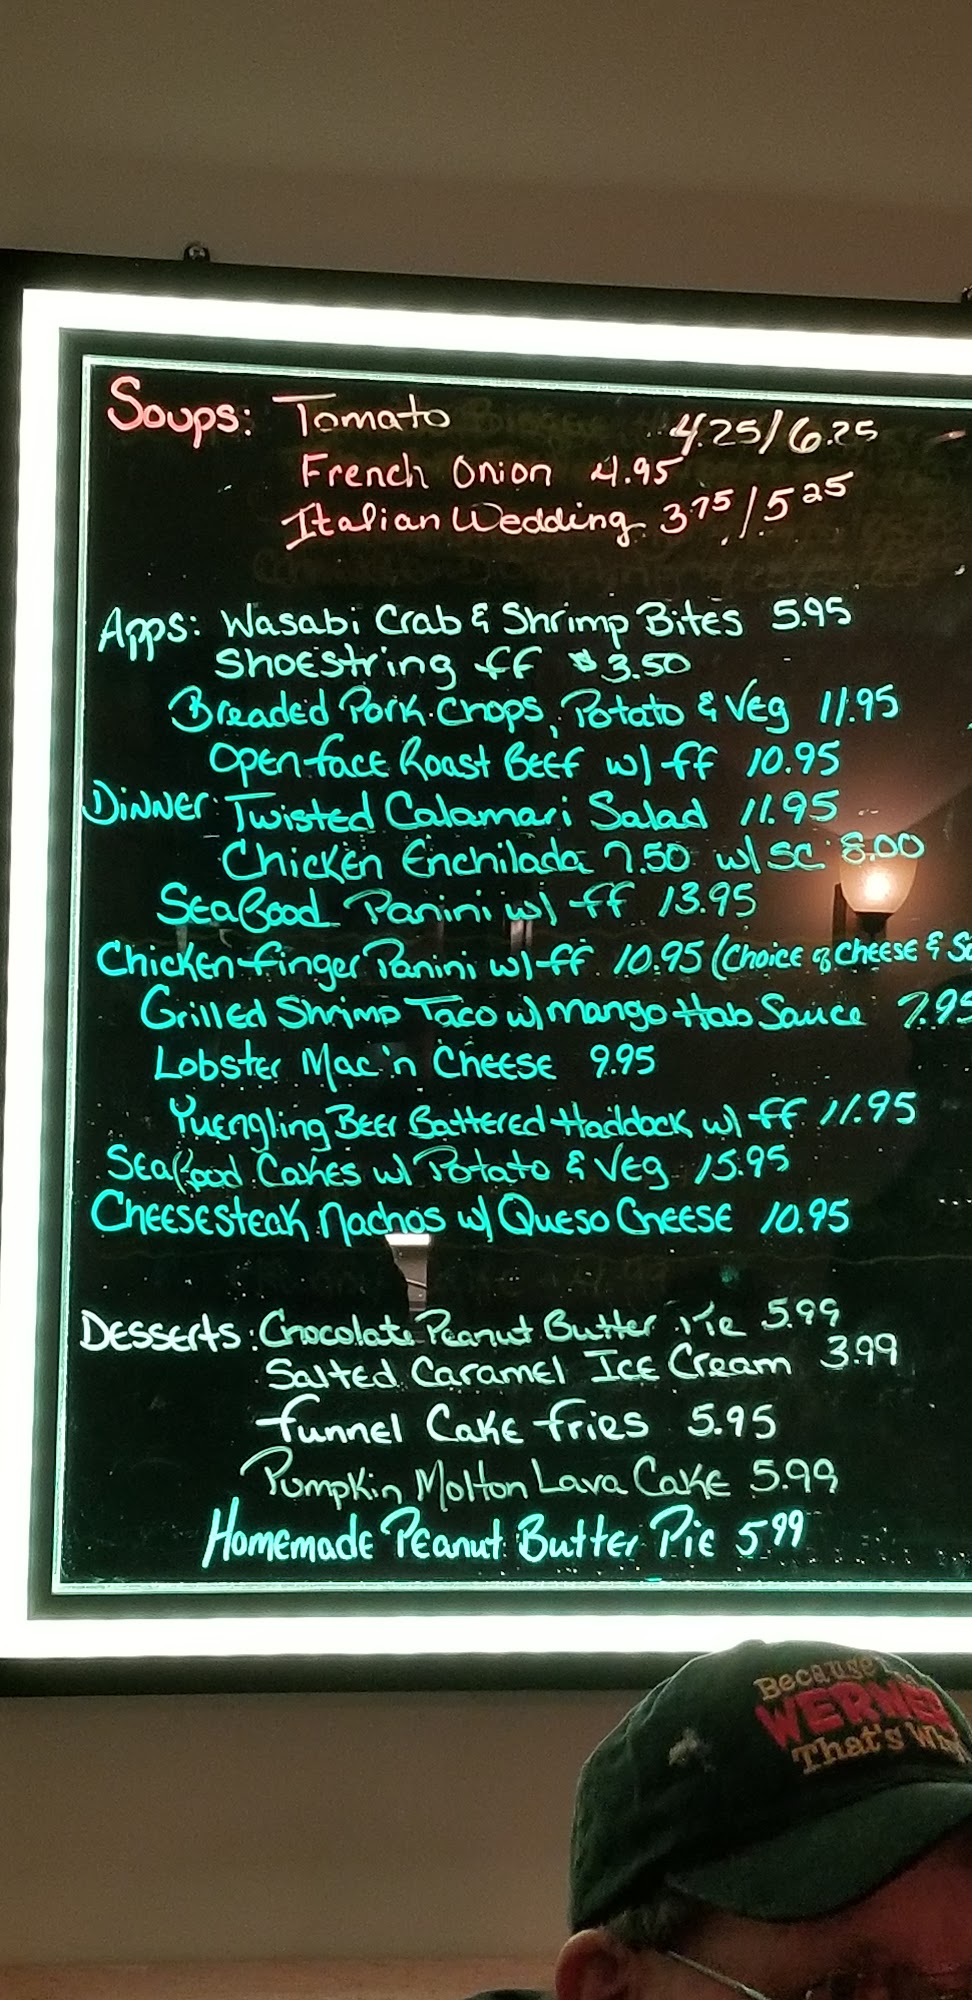 Soups: Tomato 4.25/6.25
French Onion 4.95
Italian Wedding 3.75/5.25
Apps: Wasabi Crab & Shrimp Bites 5.95
Shoestring ff $3.50
Breaded Pork Chops, Potato & Veg 11.95
Open face Roast Beef w/ ff 10.95
Dinner: Twisted Calamari Salad 11.95
Chicken Enchilada 7.50 w/ SC 8.00
Seafood Panini w/ ff 13.95
Chicken finger Panini w/ ff 10.95 (Choice of Cheese &
Grilled Shrimp Taco w/ mango Hab Sauce 7.95
Lobster Mac'n Cheese 9.95
Yuengling Beer Battered Haddock w/ ff 11.95
Seafood Cakes w/ Potato & Veg 15.95
Cheesesteak Nachos w/ Queso Cheese 10.95
Desserts: Chocolate Peanut Butter Pie 5.99
Salted Caramel Ice Cream 3.99
Funnel Cake fries 5.95
Pumpkin Molton Lava Cake 5.99
Homemade Peanut Butter Pie 5.99
Because
That's